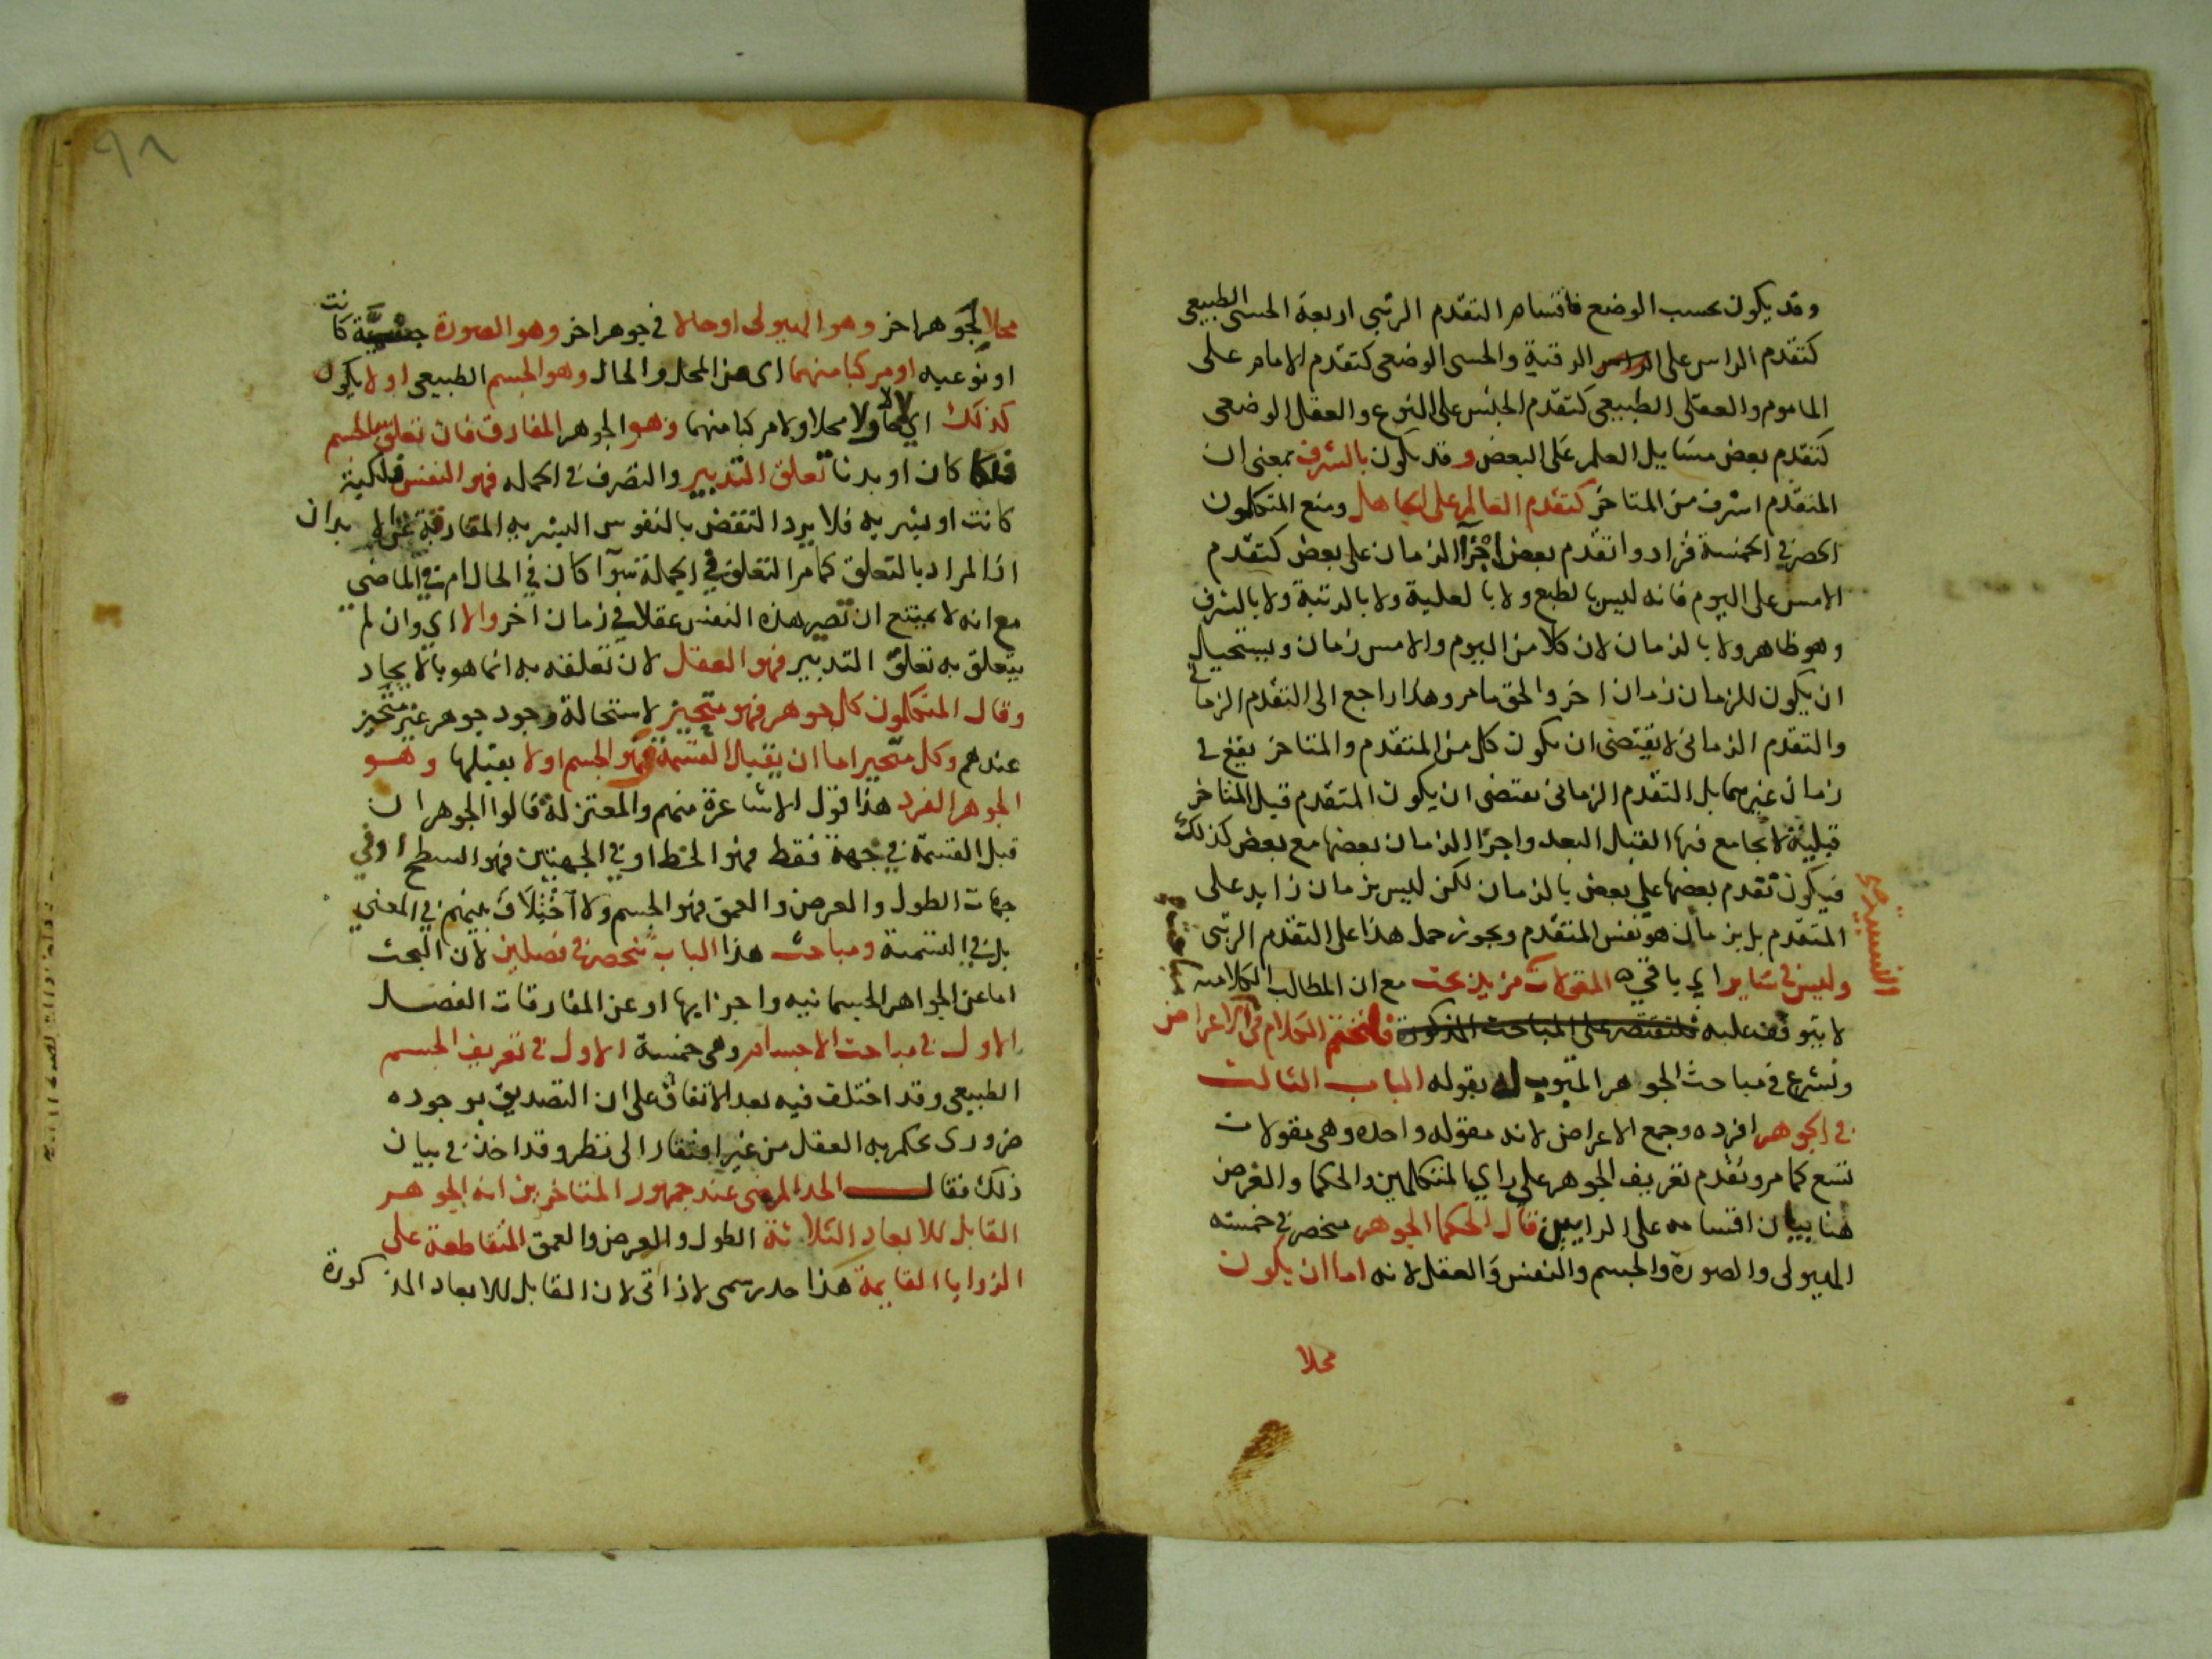 وقد يكون بحسب الوضع فاقسام التقدم الرتبي اربعة الحسى الطبيعى
كتقدم الراس على الرقبة والحسى الوضعى كتقدم الامام على
الماموم والعقلى الطبيعى كتقدم الجنس على النوع والعقلى الوضعى
كتقدم بعض مسايل العلم على البعض وقد يكون بالشرف بمعنى ان
المتقدم اشرف من المتاخر كتقدم العالم على الجاهل ومنع المتكلمون
الحصر فى الخمسة فزادوا تقدم بعض اجزآ الزمان على بعض كتقدم
الامس على اليوم فانه ليس بالطبع ولا بالعلية ولا بالرتبة ولا بالشرف
وهو ظاهر ولا بالزمان لان كلا من اليوم والامس زمان ويستحيل
ان يكون للزمان زمان اخر والحق ما مر وهذا راجع الى التقدم الزمانى
والتقدم الزمانى لا يقتضى ان يكون كل من المتقدم والمتاخر يقع فى
زمان غيرهما بل التقدم الزمانى يقتضى ان يكون المتقدم قبل المتاخر
قبلية لا يجامع فيها القبل البعد واجزا الزمان بعضها مع بعض كذلك
فيكون تقدم بعضها على بعض بالزمان لكن ليس بزمان زايد على
المتقدم بل بزمان هو نفس المتقدم ويجوز حمل هذا على التقدم الرتبى
وليس فى ساير اي باقي المقولات مزيد بحث مع ان المطالب الكلامية
النسبية
لا يتوقف عليه فلنقتصر على المباحث المذكورة فلنختم الكلام فى الاعراض
ونشرع فى مباحث الجوهر المبوب له بقوله الباب الثالث
فى الجوهر افرده وجمع الاعراض لانه مقوله واحده وهى مقولات
تسع كما مر وتقدم تعريف الجوهر على راي المتكلمين والحكما والغرض
هنا بيان اقسامه على الرايين قال الحكما الجوهر منحصر فى خمسة
الهيولى والصورة والجسم والنفس والعقل لانه اما ان يكون
محلا
٩٨
محلا لجوهر اخر وهو الهيولى او حالا فى جوهر اخر وهو الصورة جسمية كانت
او نوعيه او مركبا منهما اى من المحل والحال وهو الجسم الطبيعى او لا يكون
كذلك اي لا حالا ولا محلا ولا مركبا منهما وهو الجوهر المفارق فان تعلق بالجسم
فلكا كان او بدنا تعلق التدبير والتصرف فى الجمله فهو النفس فلكية
كانت او بشريه فلا يرد النقض بالنفوس البشريه المفارقة عن الابدان
اذ المراد بالتعلق كما مر التعلق في الجملة سوآ كان في الحال ام في الماضى
مع انه لا يمتنع ان تصير هذه النفس عقلا في زمان اخر والا اي وان لم
يتعلق به تعلق التدبير فهو العقل لان تعلقه به انما هو بالايجاد
وقال المتكلمون كل جوهر فهو متحيز لاستحالة وجود جوهر غير متحيز
عندهم وكل متحيز اما ان يقبل القسمة فهو الجسم او لا يقبلها وهو
الجوهر الفرد هذا قول الاشاعرة منهم والمعتزلة قالوا الجوهر ان
قبل القسمة في جهة فقط فهو الخط او في الجهتين فهو السطح او في
جهات الطول والعرض والعمق فهو الجسم ولا اختلاف بينهم في المعني
بل في التسمية ومباحث هذا الباب تنحصر فى فصلين لان البحث
اما عن الجواهر الجسمانيه واجزايها او عن المفارقات الفصل
الاول فى مباحث الاجسام وهى خمسة الاول فى تعريف الجسم
الطبيعى وقد اختلف فيه بعد الاتفاق على ان التصديق بوجوده
ضرورى يحكم به العقل من غير افتقار الى نظر وقد اخذ فى بيان
ذلك فقال الحد المرضى عند جمهور المتاخرين انه الجوهر
القابل للابعاد الثلاثة الطول والعرض والعمق المتقاطعة على
الزوايا القايمة هذا حد رسمى لا ذاتى لان القابل للابعاد المذكورة